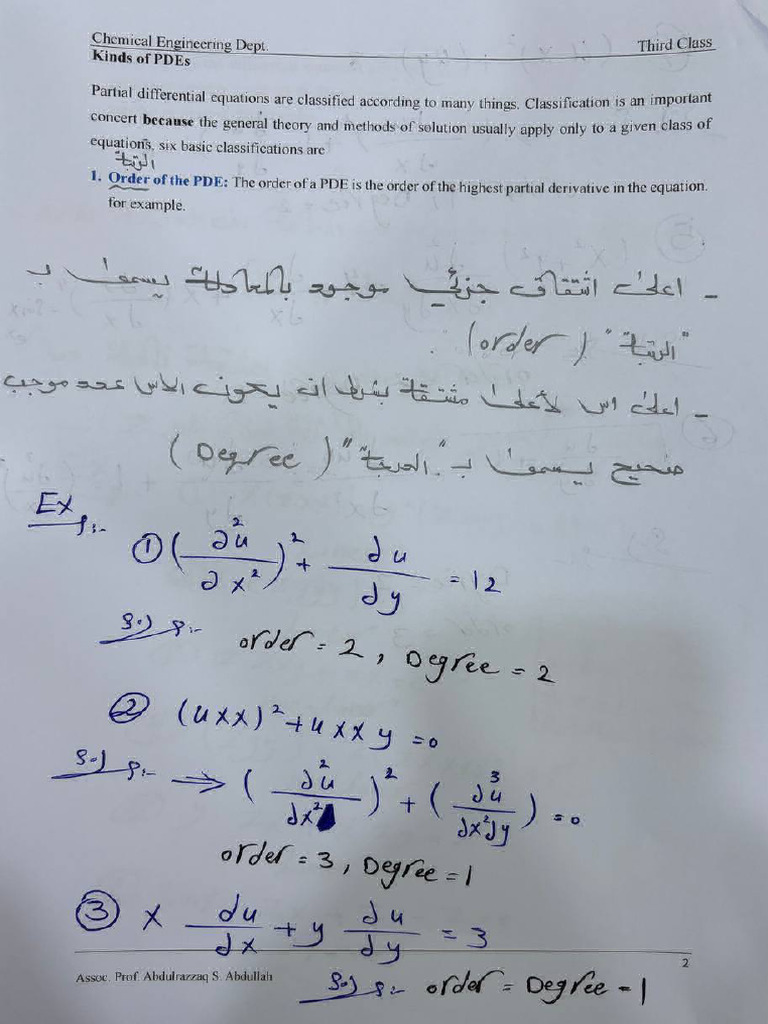 Chemical Engineering Dept. Third Class
Kinds of PDEs
Partial differential equations are classified according to many things. Classification is an important
concert because the general theory and methods of solution usually apply only to a given class of
equations, six basic classifications are
الرتبة
1. Order of the PDE: The order of a PDE is the order of the highest partial derivative in the equation.
for example.
- اعلى اشتقاق جزئي موجود بالمعادلة يسمى بـ
"الرتبة" (order) .
- اعلى اس لأعلى مشتقة بشرط ان يكون الاس عدد موجب
صحيح يسمى بـ "الدرجة" (Degree)
Ex
① (∂²u/∂x²)² + ∂u/∂y = 12
order = 2, Degree = 2
② (uxx)² + uxxy = 0
⇒ (∂²u/∂x²)² + (∂³u/∂x²∂y) = 0
order = 3, Degree = 1
③ x ∂u/∂x + y ∂u/∂y = 3
2
Assoc. Prof. Abdulrazzaq S. Abdullah
order = Degree = 1